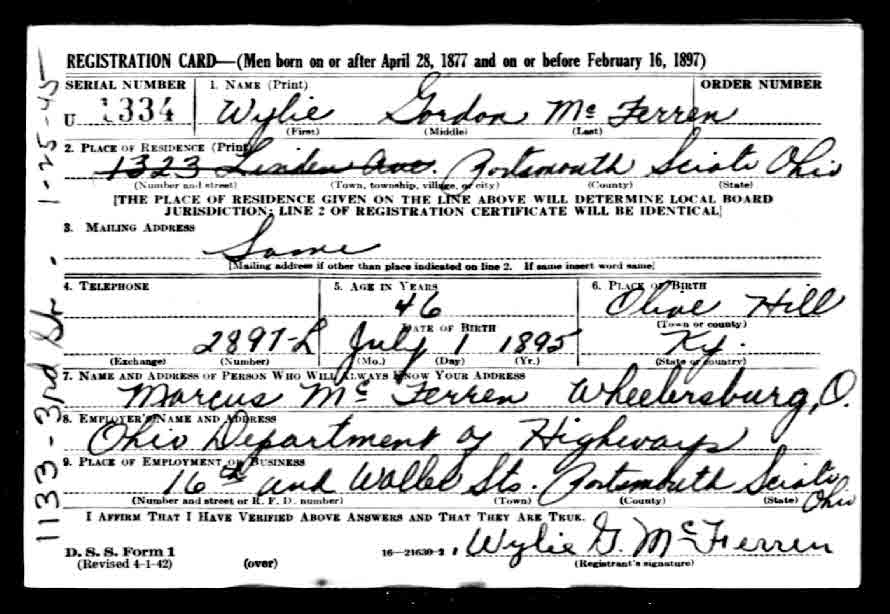 REGISTRATION CARD—(Men born on or after April 28, 1877 and on or before February 16, 1897)
SERIAL NUMBER
1. NAME (Print)
ORDER NUMBER
U 1334
Wylie Gordon Mc Ferren
(First) (Middle) (Last)
2. PLACE OF RESIDENCE (Print)
1323 Linden Ave. Portsmouth Scioto Ohio
(Number and street) (Town, township, village, or city) (County) (State)
[THE PLACE OF RESIDENCE GIVEN ON THE LINE ABOVE WILL DETERMINE LOCAL BOARD
JURISDICTION; LINE 2 OF REGISTRATION CERTIFICATE WILL BE IDENTICAL]
3. MAILING ADDRESS
Same
[Mailing address if other than place indicated on line 2. If same insert word same]
4. TELEPHONE
5. AGE IN YEARS
6. PLACE OF BIRTH
46
Olive Hill
DATE OF BIRTH
(Town or county)
2897-L
July 1 1895
Ky.
(Exchange) (Number)
(Mo.) (Day) (Yr.)
(State or country)
7. NAME AND ADDRESS OF PERSON WHO WILL ALWAYS KNOW YOUR ADDRESS
Marcus Mc Ferren Wheelersburg, O.
8. EMPLOYER'S NAME AND ADDRESS
Ohio Department of Highways
9. PLACE OF EMPLOYMENT OR BUSINESS
16th and Waller Sts. Portsmouth Scioto Ohio
(Number and street or R. F. D. number) (Town) (County) (State)
I AFFIRM THAT I HAVE VERIFIED ABOVE ANSWERS AND THAT THEY ARE TRUE.
D. S. S. Form 1
(Revised 4-1-42)
(over)
16—21630-2
Wylie G. McFerren
(Registrant's signature)
1133-3rd St. 1-25-45